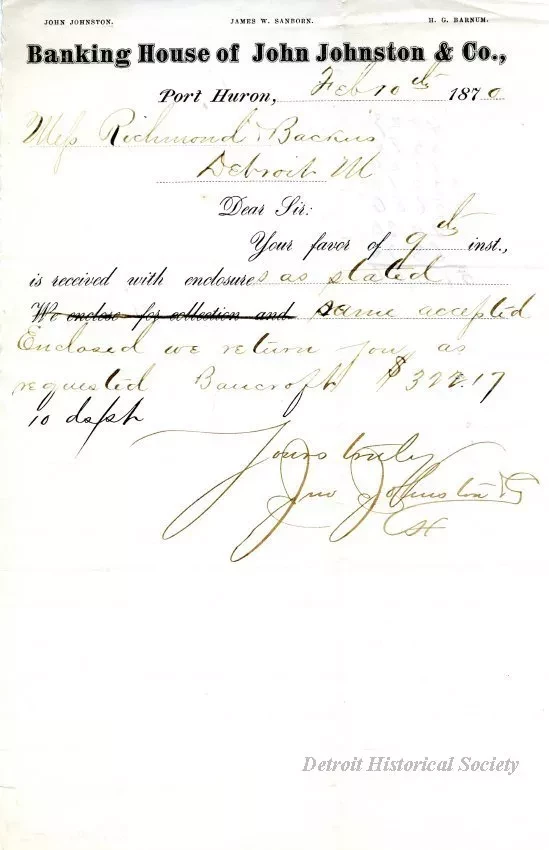 JOHN JOHNSTON. JAMES W. SANBORN. H. G. BARNUM.
Banking House of John Johnston & Co.,
Port Huron, Feb 10th 1870
Mess Richmond & Backus
Detroit M
Dear Sir:
Your favor of 9th inst.,
is received with enclosures as stated
We enclose for collection and same accepted
Enclosed we return you as
requested Bancroft $322.17
10 ds/st
Yours truly
Jno Johnston & Co
Detroit Historical Society